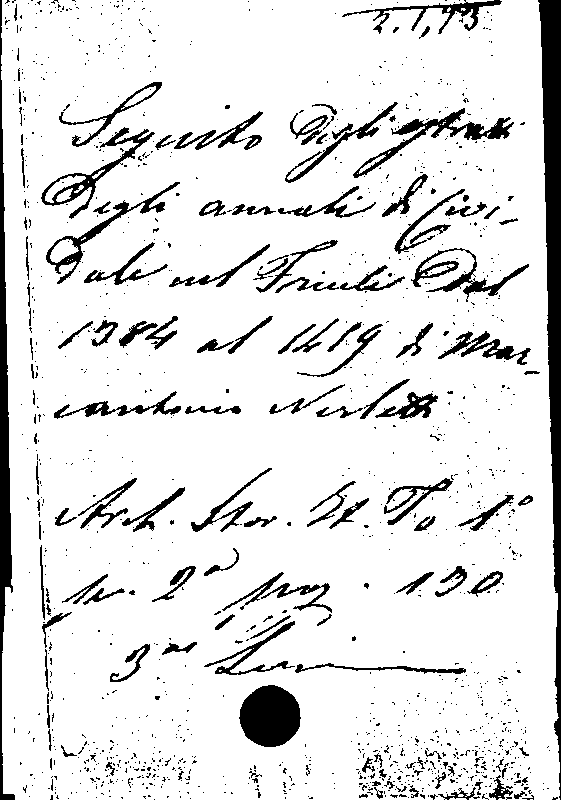 2.1,73
Seguito degli estratti
degli annali di Civi-
dale nel Friuli dal
1384 al 1419 di Mar-
cantonio Nicoletti
Arch. Stor. It. To 1°
p. 2ª pag. 130
3ª Serie